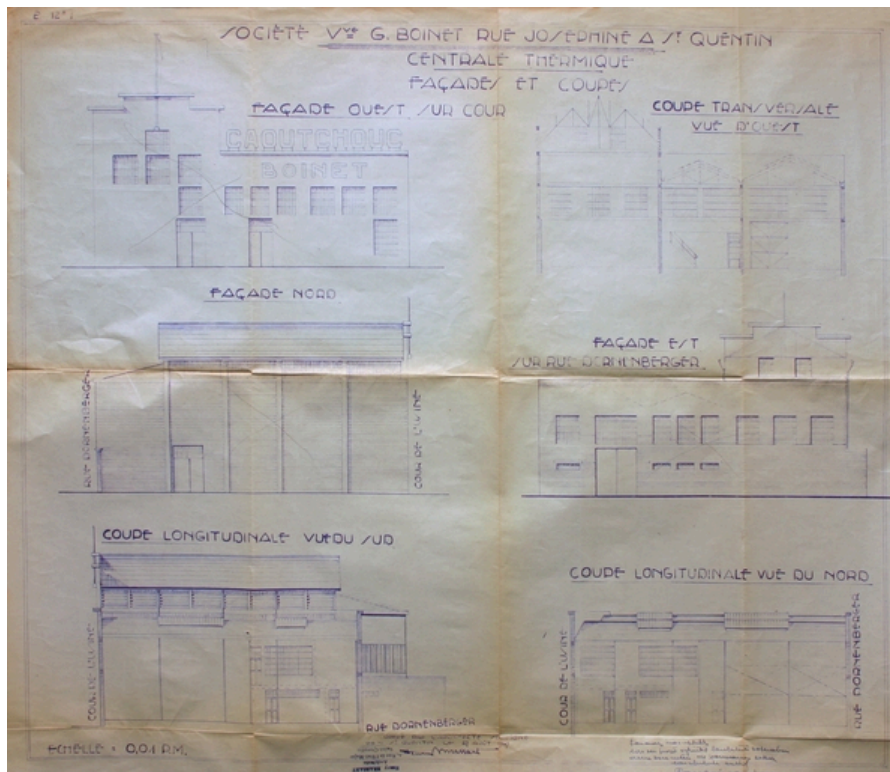 SOCIÉTÉ Vve G. BOINET RUE JOSÉPHINE A St QUENTIN
CENTRALE THERMIQUE
FAÇADES ET COUPES
FAÇADE OUEST SUR COUR
CAOUTCHOUC
BOINET
COUPE TRANSVERSALE
VUE D'OUEST
FAÇADE NORD
RUE DORNENBERGER
COUR DE L'USINE
FAÇADE EST
SUR RUE DORNENBERGER
COUPE LONGITUDINALE VUE DU SUD
COUR DE L'USINE
RUE DORNENBERGER
COUPE LONGITUDINALE VUE DU NORD
COUR DE L'USINE
RUE DORNENBERGER
ECHELLE = 0,01 P.M.